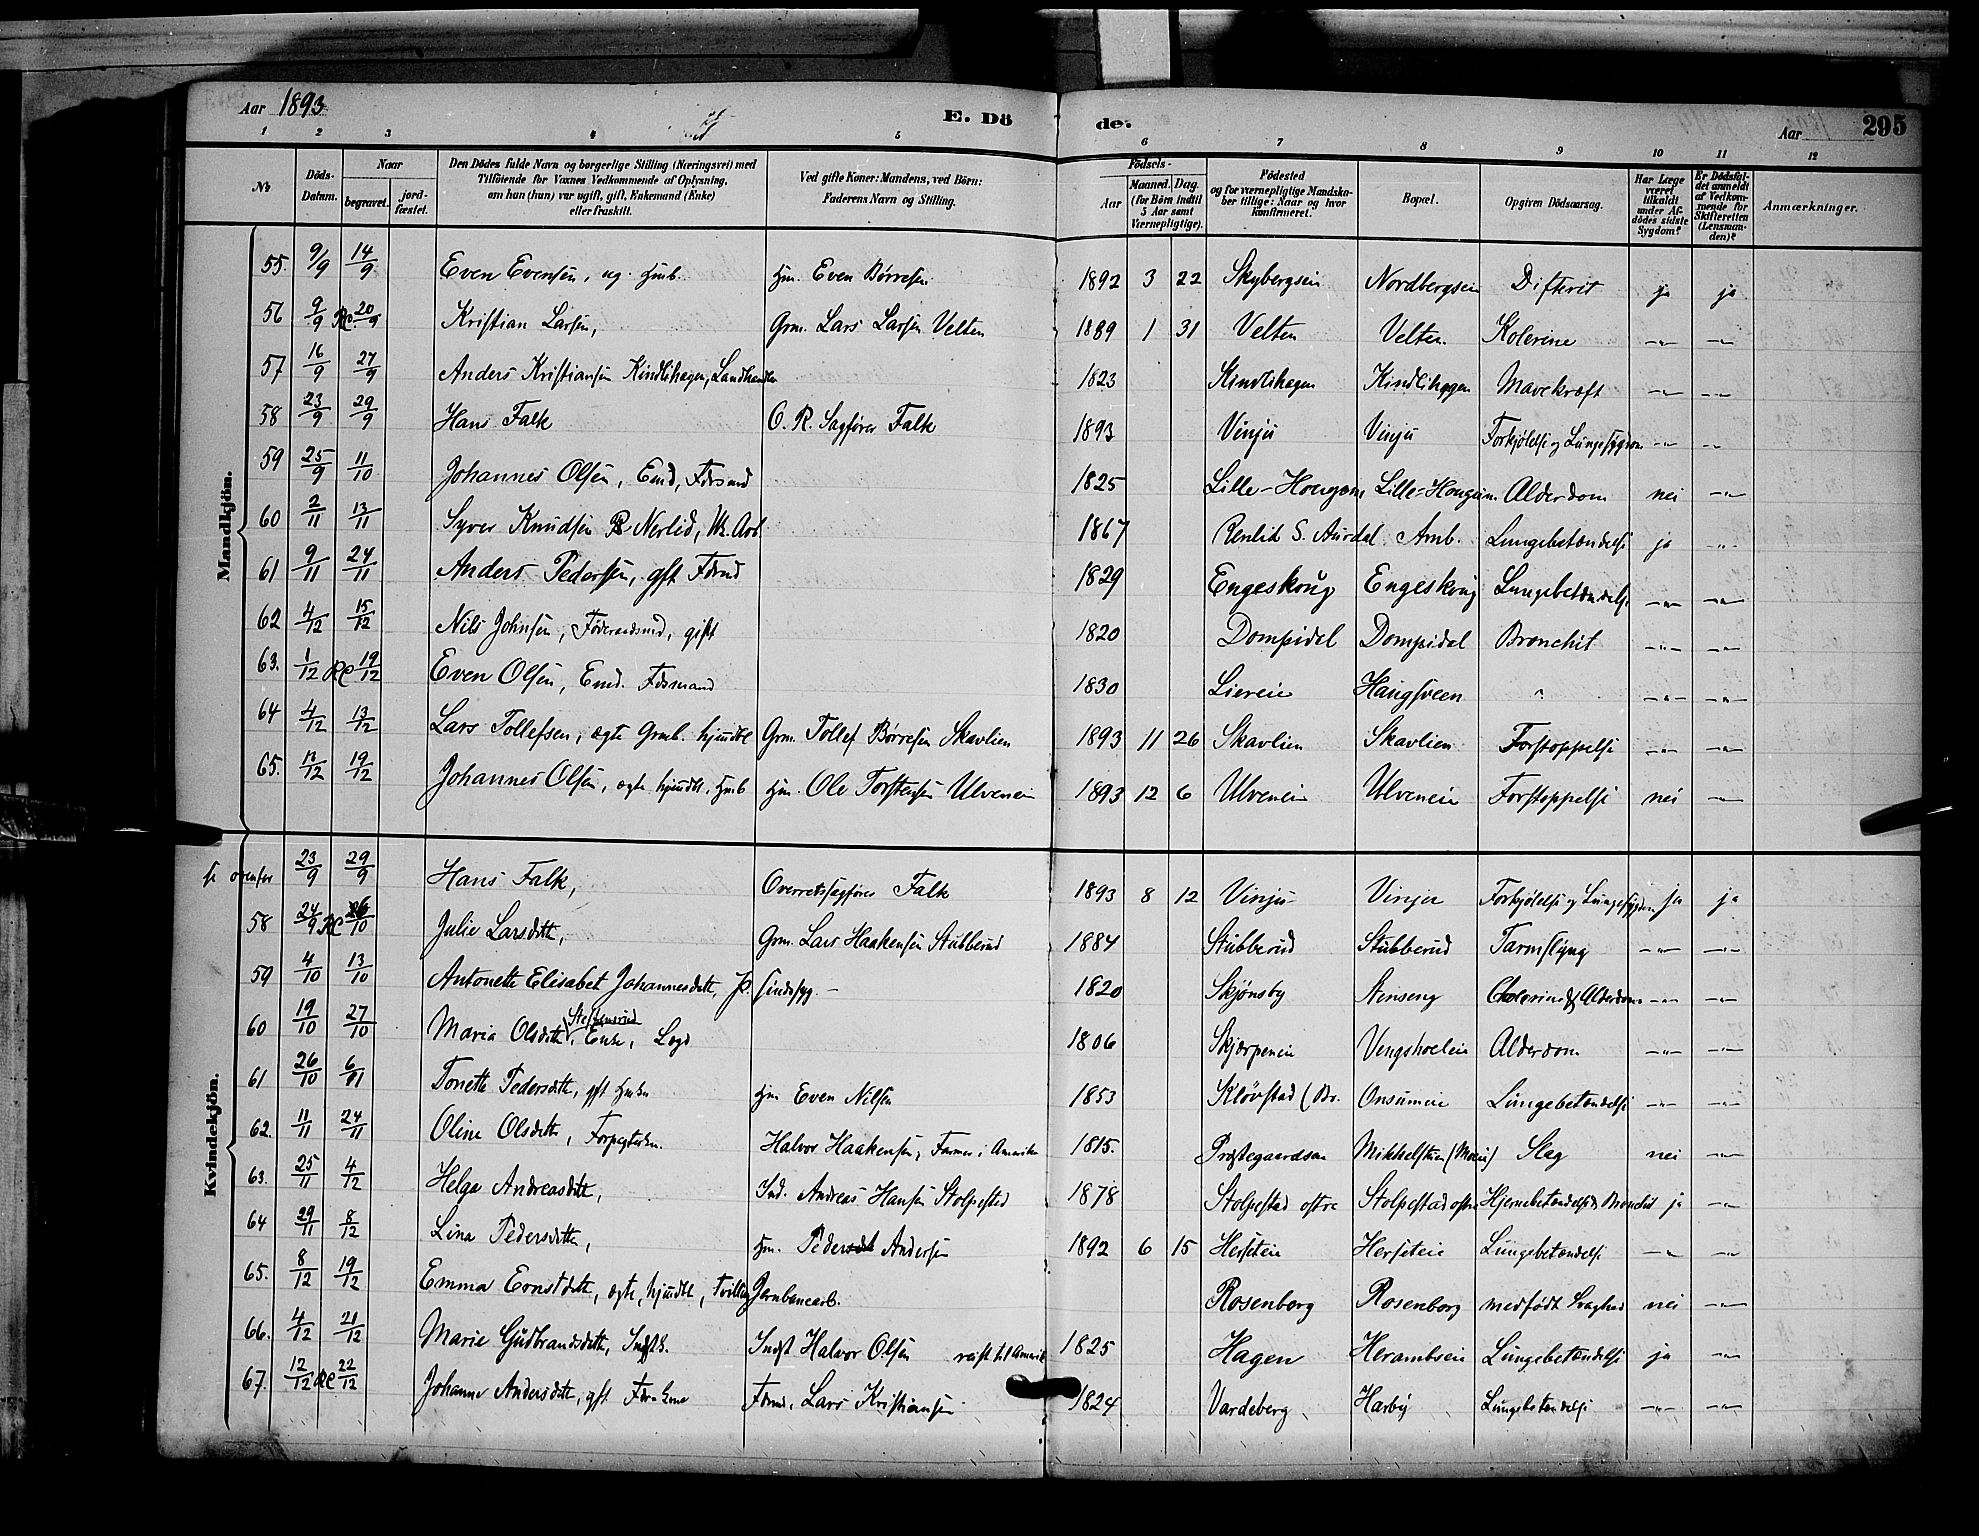 Aar 1893 E. Döde. Aar 295
1 2 3 4 5 6 7 8 9 10 11 12
№ Döds-Datum. Naar begravet. jordfæstet. Den Dödes fulde Navn og borgerlige Stilling (Næringsvei) med Tilföiende for Voxnes Vedkommende af Oplysning, om han (hun) var ugift, gift, Enkemand (Enke) eller fraskilt. Ved gifte Koner: Mandens, ved Börn: Faderens Navn og Stilling. Födsels- Aar Maaned. Dag. (for Börn indtil 5 Aar samt Værnepligtige). Födested og for værnepligtige Mandskaber tillige: Naar og hvor konfirmeret. Bopæl. Opgiven Dödsaarsag. Har Læge været tilkaldt under Afdödes sidste Sygdom? Er Dödsfaldet anmeldt af Vedkommende for Skifteretten (Lensmanden)? Anmærkninger.
Mandkjön.
55. 9/9 14/9 Even Evensen, ug. Hmb. Hm. Even Børresen 1892 3 22 Skybergseie Nordbergseie Difterit ja ja
56 9/9 20/9 Kristian Larsen, Grm. Lars Larsen Velten 1889 1 31 Velten Velten Kolerine -"- -"-
57 16/9 27/9 Anders Kristiansen Kindlihagen, Landhandler 1823 Kindlihagen Kindlihagen Mavekræft -"- -"-
58 23/9 29/9 Hans Falk O. R. Sagfører Falk 1893 Vinju Vinju Forkjølelse og Lungesygdom -"- -"-
59 25/9 11/10 Johannes Olsen, Emd, Fdrsmd 1825 Lille-Hougom Lille-Hougum Alderdom nei -"-
60 2/11 13/11 Syver Knudsen Nerlid, Arb. 1867 Renlid S. Aurdal Arnb. Lungebetændelse ja -"-
61 9/11 24/11 Anders Pedersen, gft Fdrmd 1829 Engeskoug Engeskoug Lungebetændelse -"- -"-
62 4/12 15/12 Nils Johnsen, Føderaadsmd, gift 1820 Dompidal Dompidal Bronchit -"- -"-
63. 1/12 19/12 Even Olsen, Emd. Fdrsmand 1830 Liereie Haugsveen " -"- -"-
64 4/12 13/12 Lars Tollefsen, ægte Grmb. hjmdbt Grm. Tollef Børresen Skavlien 1893 11 26 Skavlien Skavlien Forstoppelse -"- -"-
65. 13/12 19/12 Johannes Olsen, ægte hjmdbt. Hmb Hm. Ole Torstensen Ulveneie 1893 12 6 Ulveneie Ulveneie Forstoppelse nei -"-
Kvindekjön.
se ovenfor 23/9 29/9 Hans Falk, Overretssagfører Falk 1893 8 12 Vinju Vinju Forkjølelse og Lungesygdom ja ja
58 24/9 /10 Julie Larsdtt, Grm. Lars Haakensen Stubberud 1884 Stubberud Stubberud Tarmslyng -"- -"-
59 4/10 13/10 Antonette Elisabet Johannesdtt, sindssyg. 1820 Skjønsby Stenseng Cholerine & Alderdom -"- -"-
60 19/10 27/10 Maria Olsdtt Steffensrud, Enke, Legd 1806 Skjærpeneie Vengshoeleie Alderdom -"- -"-
61 26/10 6/11 Tonette Pedersdtt, gft Hmkn Hm Even Nilsen 1853 Kløvstad (Br. Onsumeie Lungebetændelse -"- -"-
62. 11/11 24/11 Oline Olsdtt, Forpagterkn. Halvor Haakensen, Farmer i Amerika 1815. Præstegaardsen Mikkelstuen (Moen) Slag nei -"-
63. 25/11 4/12 Helga Andreasdtt, Ind. Andreas Hansen Stolpestad 1878 Stolpestad østre Stolpestad østre Hjernebetændelse & Bronchit ja -"-
64 29/11 8/12 Lina Pedersdtt, Hm. Peder Andersen 1892 6 15 Herseteie Herseteie Lungebetændelse -"- -"-
65. 8/12 19/12 Emma Ernstdtt, ægte, hjmdbt, Tvilling Jernbanearb. Rosenborg Rosenborg medfødt Svaghed nei -"-
66. 4/12 21/12 Marie Gudbrandsdtt, Indst. Indst Halvor Olsen reist til Amerik 1825 Hagen Herambseie Lungebetændelse ja -"-
67. 12/12 22/12 Johanne Andersdtt, gft Fdrkone Fdrmd. Lars Kristiansen 1824 Vardeberg Harby Lungebetændelse -"- -"-